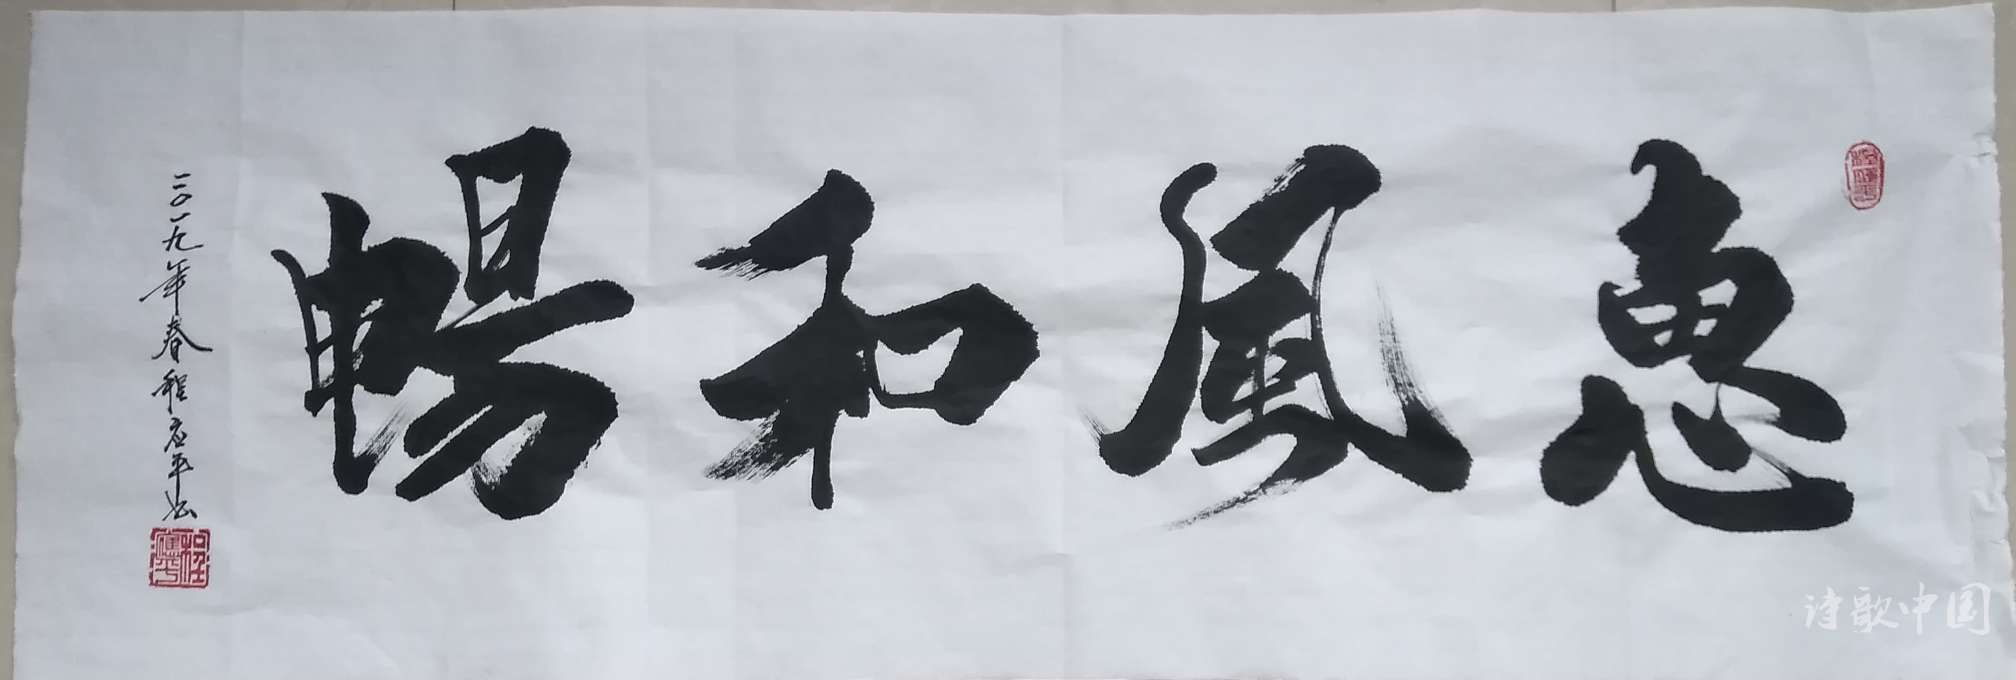 惠風和暢
二〇一九年春程应平书
程應平
诗歌中国